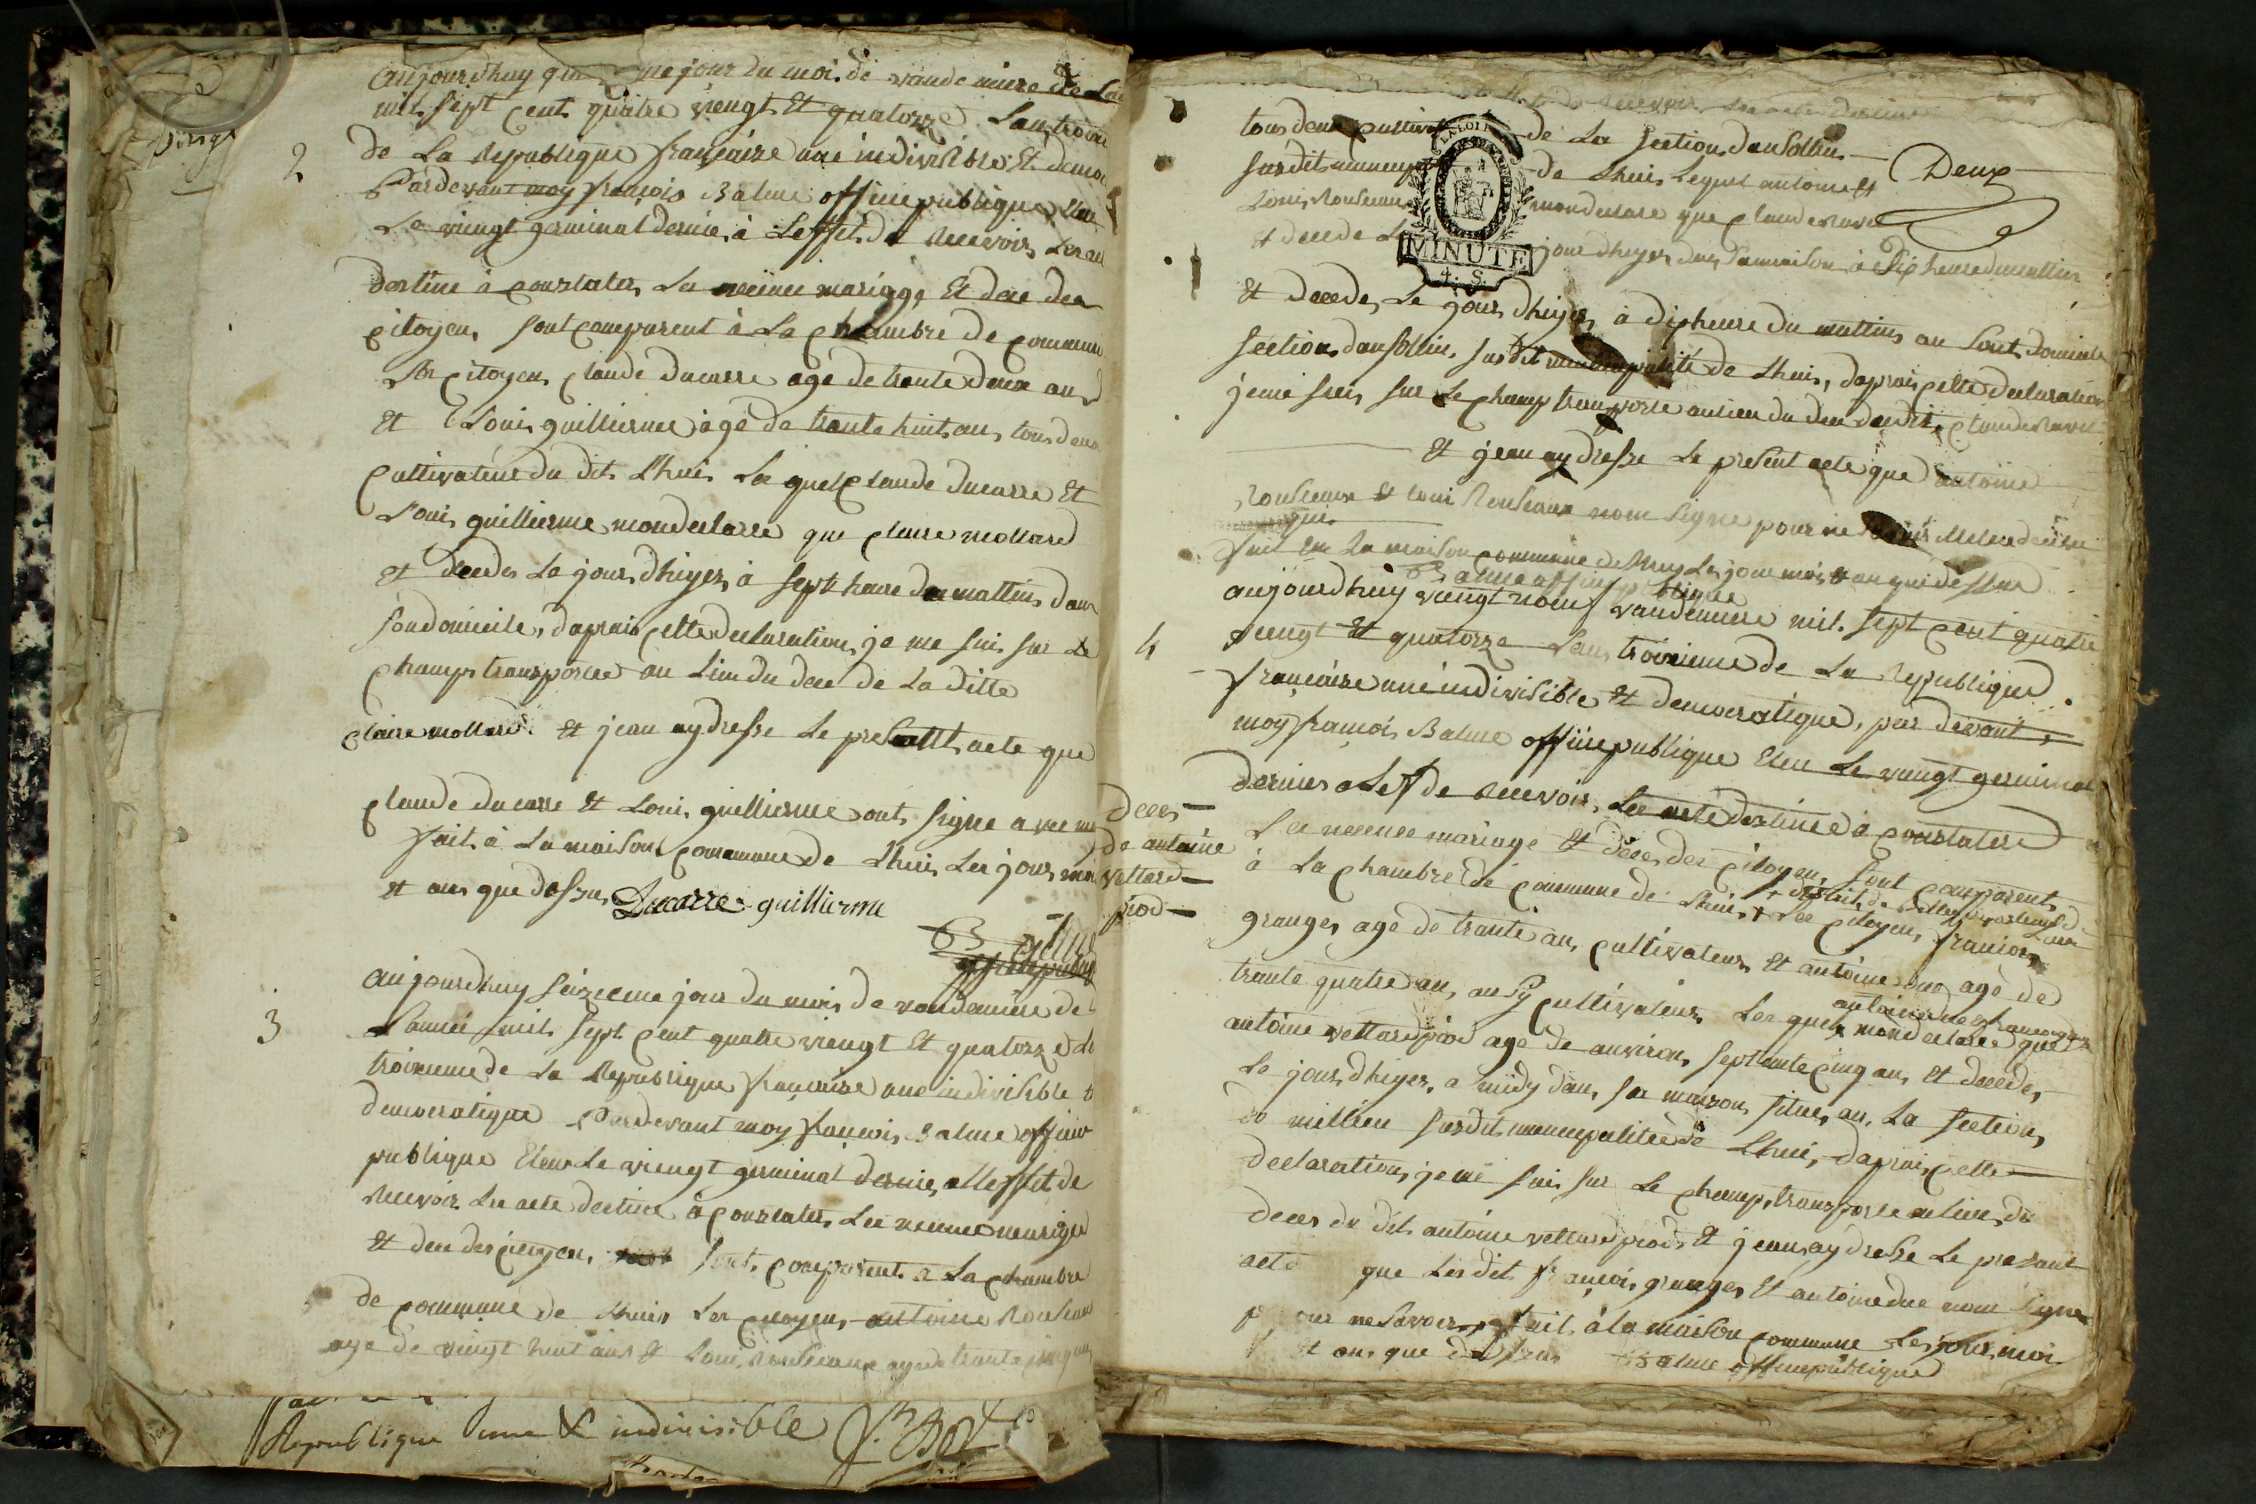 2
aujourdhuy jour du mois de vandemiere de Lan
mil sept cent quatre viengt Et quatorze Lan troi
de La Republique française une indivisible Et democ
Pardevant moy françois Balme officie publique Eleu
Le viengt germinal dernier à Leffet de Recevoir Les act
destine à constater La mariage Et dece des
citoyen, sont comparent à La chambre de commune
Les citoyen claude ducarre age de trante deux ans
et Loui guillierme agé de trante huit ans tous deux
cultivateur du dit Lhuis Le quel claude ducarre Et
Loui guillierme mon declarre que cleire mollard
et decedes Le jour dhiyer à sept heure du mattin dans
son domicile, daprais cette declaration je me suis sur Le
champs transporte au Lieu du dece de La ditte
claire mollard et jean ay dresse Le present acte que
claude ducarre Et Loui guillierme ont signe avec moy
fait à La maison commune de Lhuis Les jour moi
et ans que dessus Ducarre guillierme
Balme
officie publique
3
aujourdhuy seizieme jour du mois de vandemiere de
L'année mil sept cent quatre viengt Et quatorze de
troixieme de La Republique francaise une indivisible &
democratique Pardevant moy francois Balme officie
publique Eleu Le viengt germinal dernier alleffet de
Recevoir Les acte destine à constater Les mariage
et dece des citoyen, sont comparent à La chambre
de commune de Lhuis Les citoyen antoine Rouleaux
age de vingt huit ans & Loui Rouleaux age de trante cinq ans
Republique une & indivisible
tous deux cultivat de La section dansollin
susdit municip de Lhuis Lequel antoine Et
Loui Rouleaux mon declare que claude Ravet
et decede Le jour dhiyer dans sa maison à dix heure du mattin
Deux
LA LOI
MINUTE
4. S.
et decede Le jour dhiyer à dix heure du mattin au sout domicile
section dansollin, susdit municipalité de Lhuis, daprais cette declaration
je me suis sur Le champ transporte au lieu du dece dudit claude Ravet
et jean ay dresse Le present acte que antoine
Rouleaux et loui Rouleaux nom signe pour ne
fait en La maison commune de Lhuis Les jour mois & an que dessus
Balme officie publique
4
aujourdhuy viengt neuf vandemiere mil sept cent quatre
viengt Et quatorze Lan troixieme de La Republique
française une indivisible & democratique, par devant
moy françois Balme officie publique Eleu Le viengt germinal
dernier a Leff de Recevoir Les acte destine à constatere
Les mariage Et dece des citoyen sont comparent
à La chambre de commune de Lhuis, Les citoyen francois
granger age de trante an, cultivateur Et antoine duc age de
trante quatre an, ausy cultivateur Les quels mon declare que
antoine duc & francois granger
antoine vettard piod age de anviron septante cinq an Et decede
Le jour dhiyer, a midy dans sa maison, situe, au La section
du millieu susdit municipalitée de Lhuis, daprais cette
declaration, je me suis sur Le champ transporte au lieu du
deces du dit antoine vettard piod & jean ay dresse Le presant
acte que Lesdit françois granger Et antoine duc nom signe
pour ne savoir fait à la maison commune Les jour moi
Et ans que dessus Balme officie publique
deces
de antoine
vettard
piod